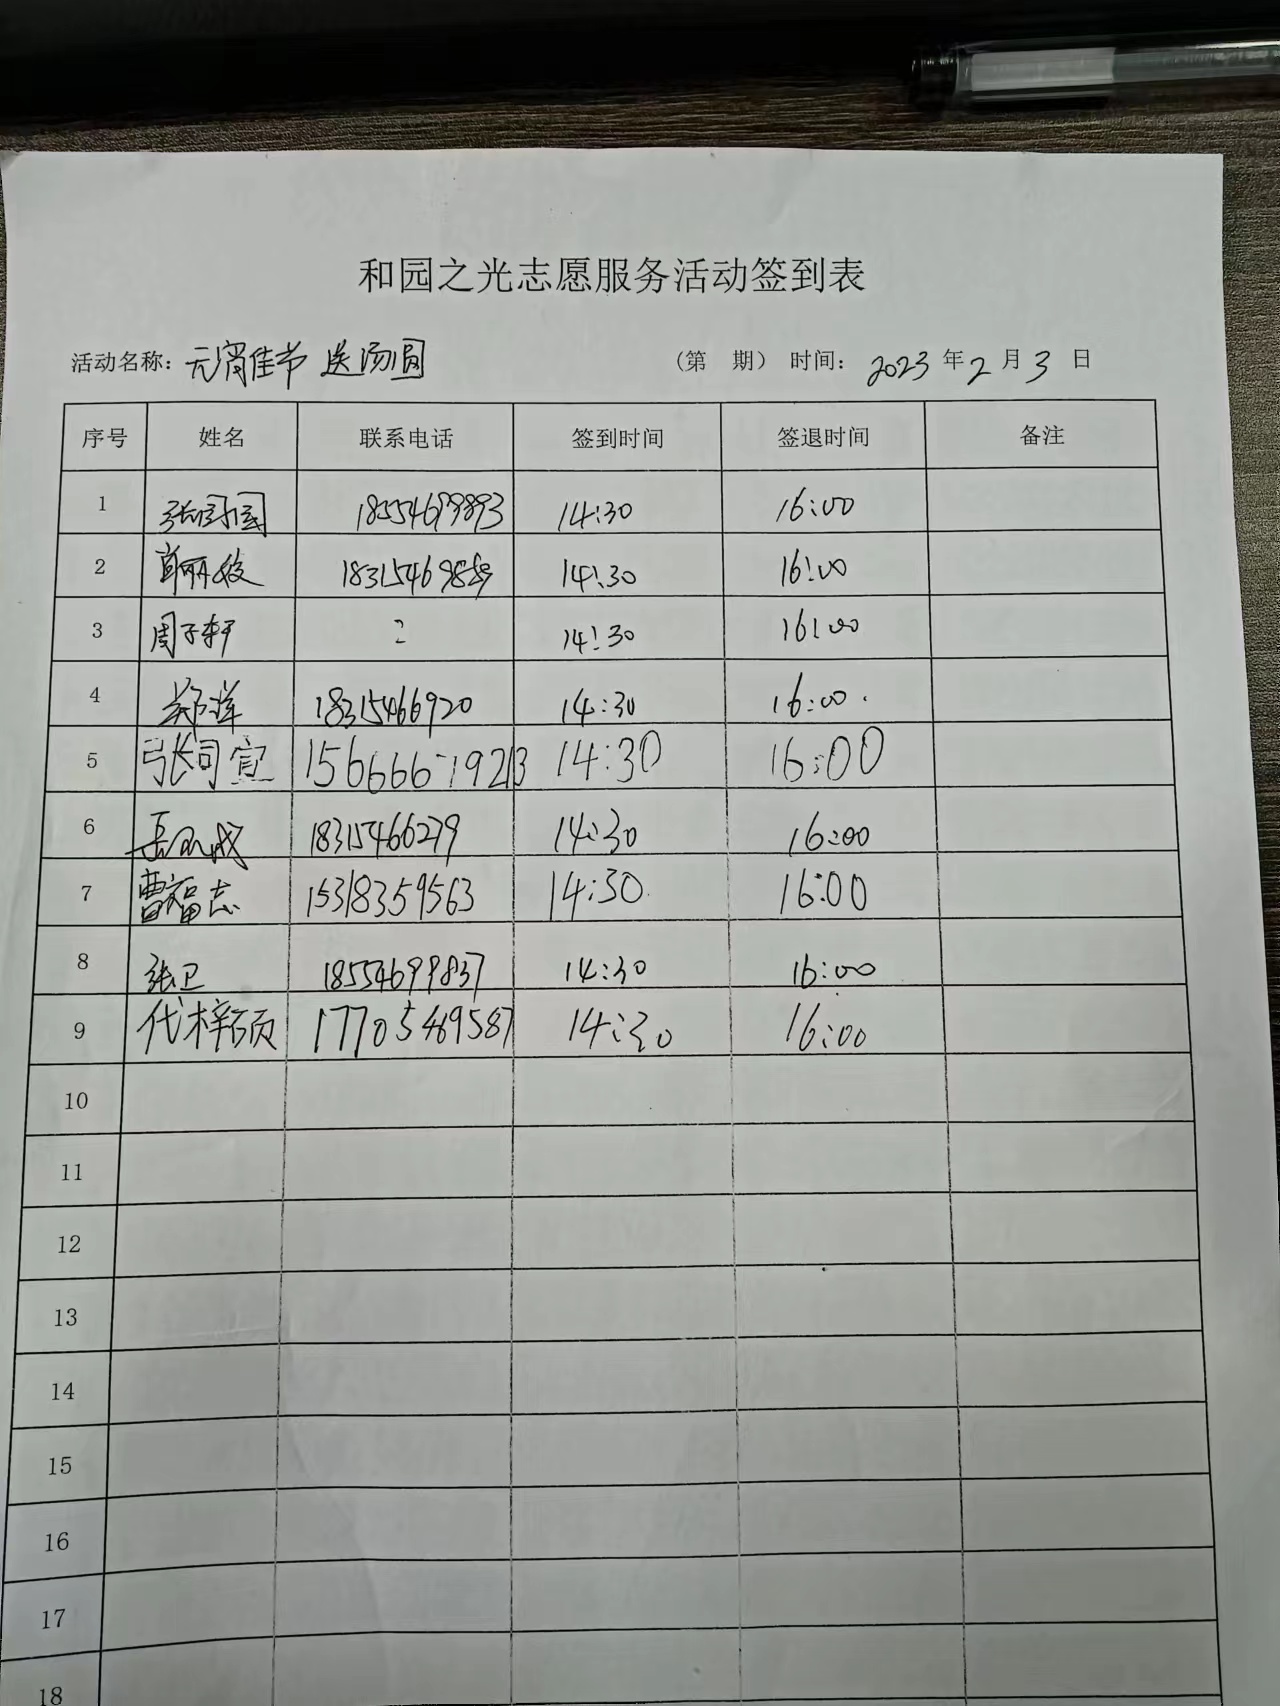 和园之光志愿服务活动签到表
活动名称：元宵佳节 送汤圆 （第 期） 时间：2023年2月3日
序号 姓名 联系电话 签到时间 签退时间 备注
1 18554699893 14:30 16:00
2 18315469889 14:30 16:00
3 周子轩 14:30 16:00
4 郑洋 18315466920 14:30 16:00
5 张司宣 14:30 16:00
6 18315466279 14:30 16:00
7 曹福志 15318359563 14:30 16:00
8 张卫 18554699837 14:30 16:00
9 代梓硕 17705469587 14:30 16:00
10
11
12
13
14
15
16
17
18